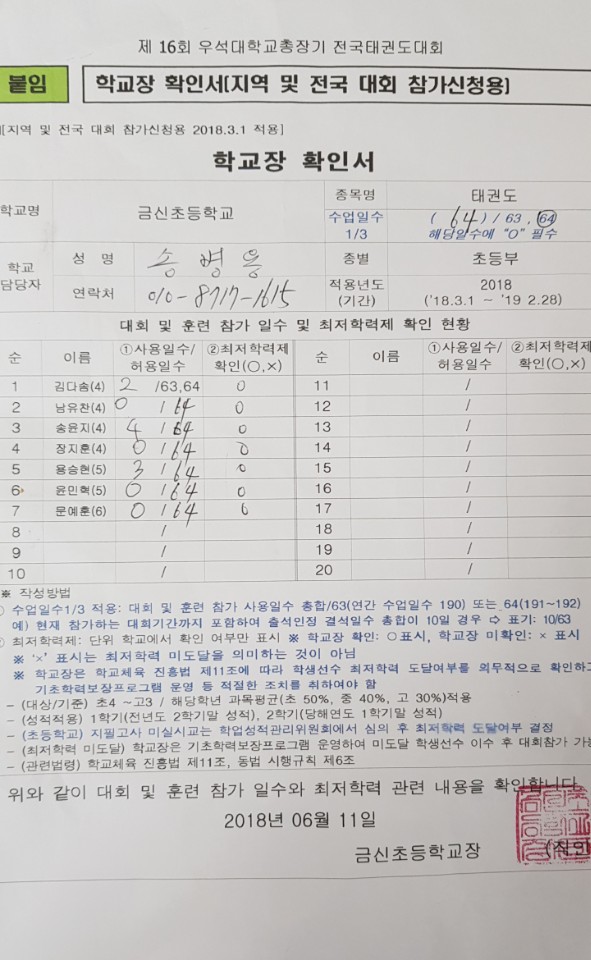 제 16회 우석대학교총장기 전국태권도대회
붙임 학교장 확인서[지역 및 전국 대회 참가신청용]
[지역 및 전국 대회 참가신청용 2018.3.1 적용]
학교장 확인서
학교명 금신초등학교 종목명 태권도
수업일수 1/3 ( 64 ) / 63, 64
해당일수에 "O" 필수
학교 담당자 성 명 송병용 종별 초등부
연락처 010-8717-1615 적용년도 (기간) 2018 ('18.3.1 ~ '19 2.28)
대회 및 훈련 참가 일수 및 최저학력제 확인 현황
순 이름 ①사용일수/허용일수 ②최저학력제 확인(○,×) 순 이름 ①사용일수/허용일수 ②최저학력제 확인(○,×)
1 김다솜(4) 2 /63,64 0 11 /
2 남유찬(4) 0 / 64 0 12 /
3 송윤지(4) 4 / 64 0 13 /
4 장지훈(4) 0 / 64 0 14 /
5 용승현(5) 3 / 64 0 15 /
6 윤민혁(5) 0 / 64 0 16 /
7 문예훈(6) 0 / 64 0 17 /
8 / 18 /
9 / 19 /
10 / 20 /
※ 작성방법
수업일수1/3 적용: 대회 및 훈련 참가 사용일수 총합/63(연간 수업일수 190) 또는 64(191~192)
예) 현재 참가하는 대회기간까지 포함하여 출석인정 결석일수 총합이 10일 경우 ⇨ 표기: 10/63
최저학력제: 단위 학교에서 확인 여부만 표시 ※ 학교장 확인: ○표시, 학교장 미확인: × 표시
※ '×' 표시는 최저학력 미도달을 의미하는 것이 아님
※ 학교장은 학교체육 진흥법 제11조에 따라 학생선수 최저학력 도달여부를 의무적으로 확인하고
기초학력보장프로그램 운영 등 적절한 조치를 취하여야 함
- (대상/기준) 초4 ~고3 / 해당학년 과목평균(초 50%, 중 40%, 고 30%)적용
- (성적적용) 1학기(전년도 2학기말 성적), 2학기(당해연도 1학기말 성적)
- (초등학교) 지필고사 미실시교는 학업성적관리위원회에서 심의 후 최저학력 도달여부 결정
- (최저학력 미도달) 학교장은 기초학력보장프로그램 운영하여 미도달 학생선수 이수 후 대회참가 가능
- (관련법령) 학교체육 진흥법 제11조, 동법 시행규칙 제6조
위와 같이 대회 및 훈련 참가 일수와 최저학력 관련 내용을 확인합니다
2018년 06월 11일
금신초등학교장 (직인